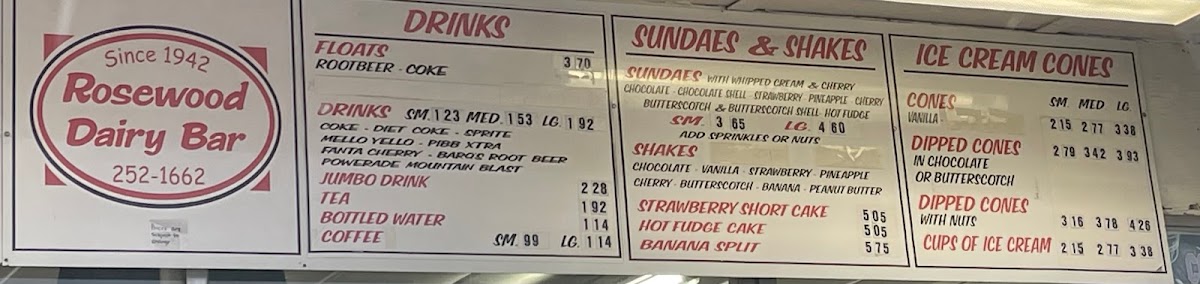 Since 1942
Rosewood
Dairy Bar
252-1662
DRINKS
FLOATS 3 70
ROOTBEER - COKE
DRINKS SM. 1 23 MED. 1 53 LG. 1 92
COKE - DIET COKE - SPRITE
MELLO YELLO - PIBB XTRA
FANTA CHERRY - BARQ'S ROOT BEER
POWERADE MOUNTAIN BLAST
JUMBO DRINK 2 28
TEA 1 92
BOTTLED WATER 1 14
COFFEE SM. 99 LG. 1 14
SUNDAES & SHAKES
SUNDAES WITH WHIPPED CREAM & CHERRY
CHOCOLATE - CHOCOLATE SHELL - STRAWBERRY - PINEAPPLE - CHERRY
BUTTERSCOTCH & BUTTERSCOTCH SHELL - HOT FUDGE
SM. 3 65 LG. 4 60
ADD SPRINKLES OR NUTS
SHAKES
CHOCOLATE - VANILLA - STRAWBERRY - PINEAPPLE
CHERRY - BUTTERSCOTCH - BANANA - PEANUT BUTTER
STRAWBERRY SHORT CAKE 5 05
HOT FUDGE CAKE 5 05
BANANA SPLIT 5 75
ICE CREAM CONES
CONES SM. MED LG.
VANILLA 2 15 2 77 3 38
DIPPED CONES 2 79 3 42 3 93
IN CHOCOLATE
OR BUTTERSCOTCH
DIPPED CONES
WITH NUTS 3 16 3 78 4 26
CUPS OF ICE CREAM 2 15 2 77 3 38